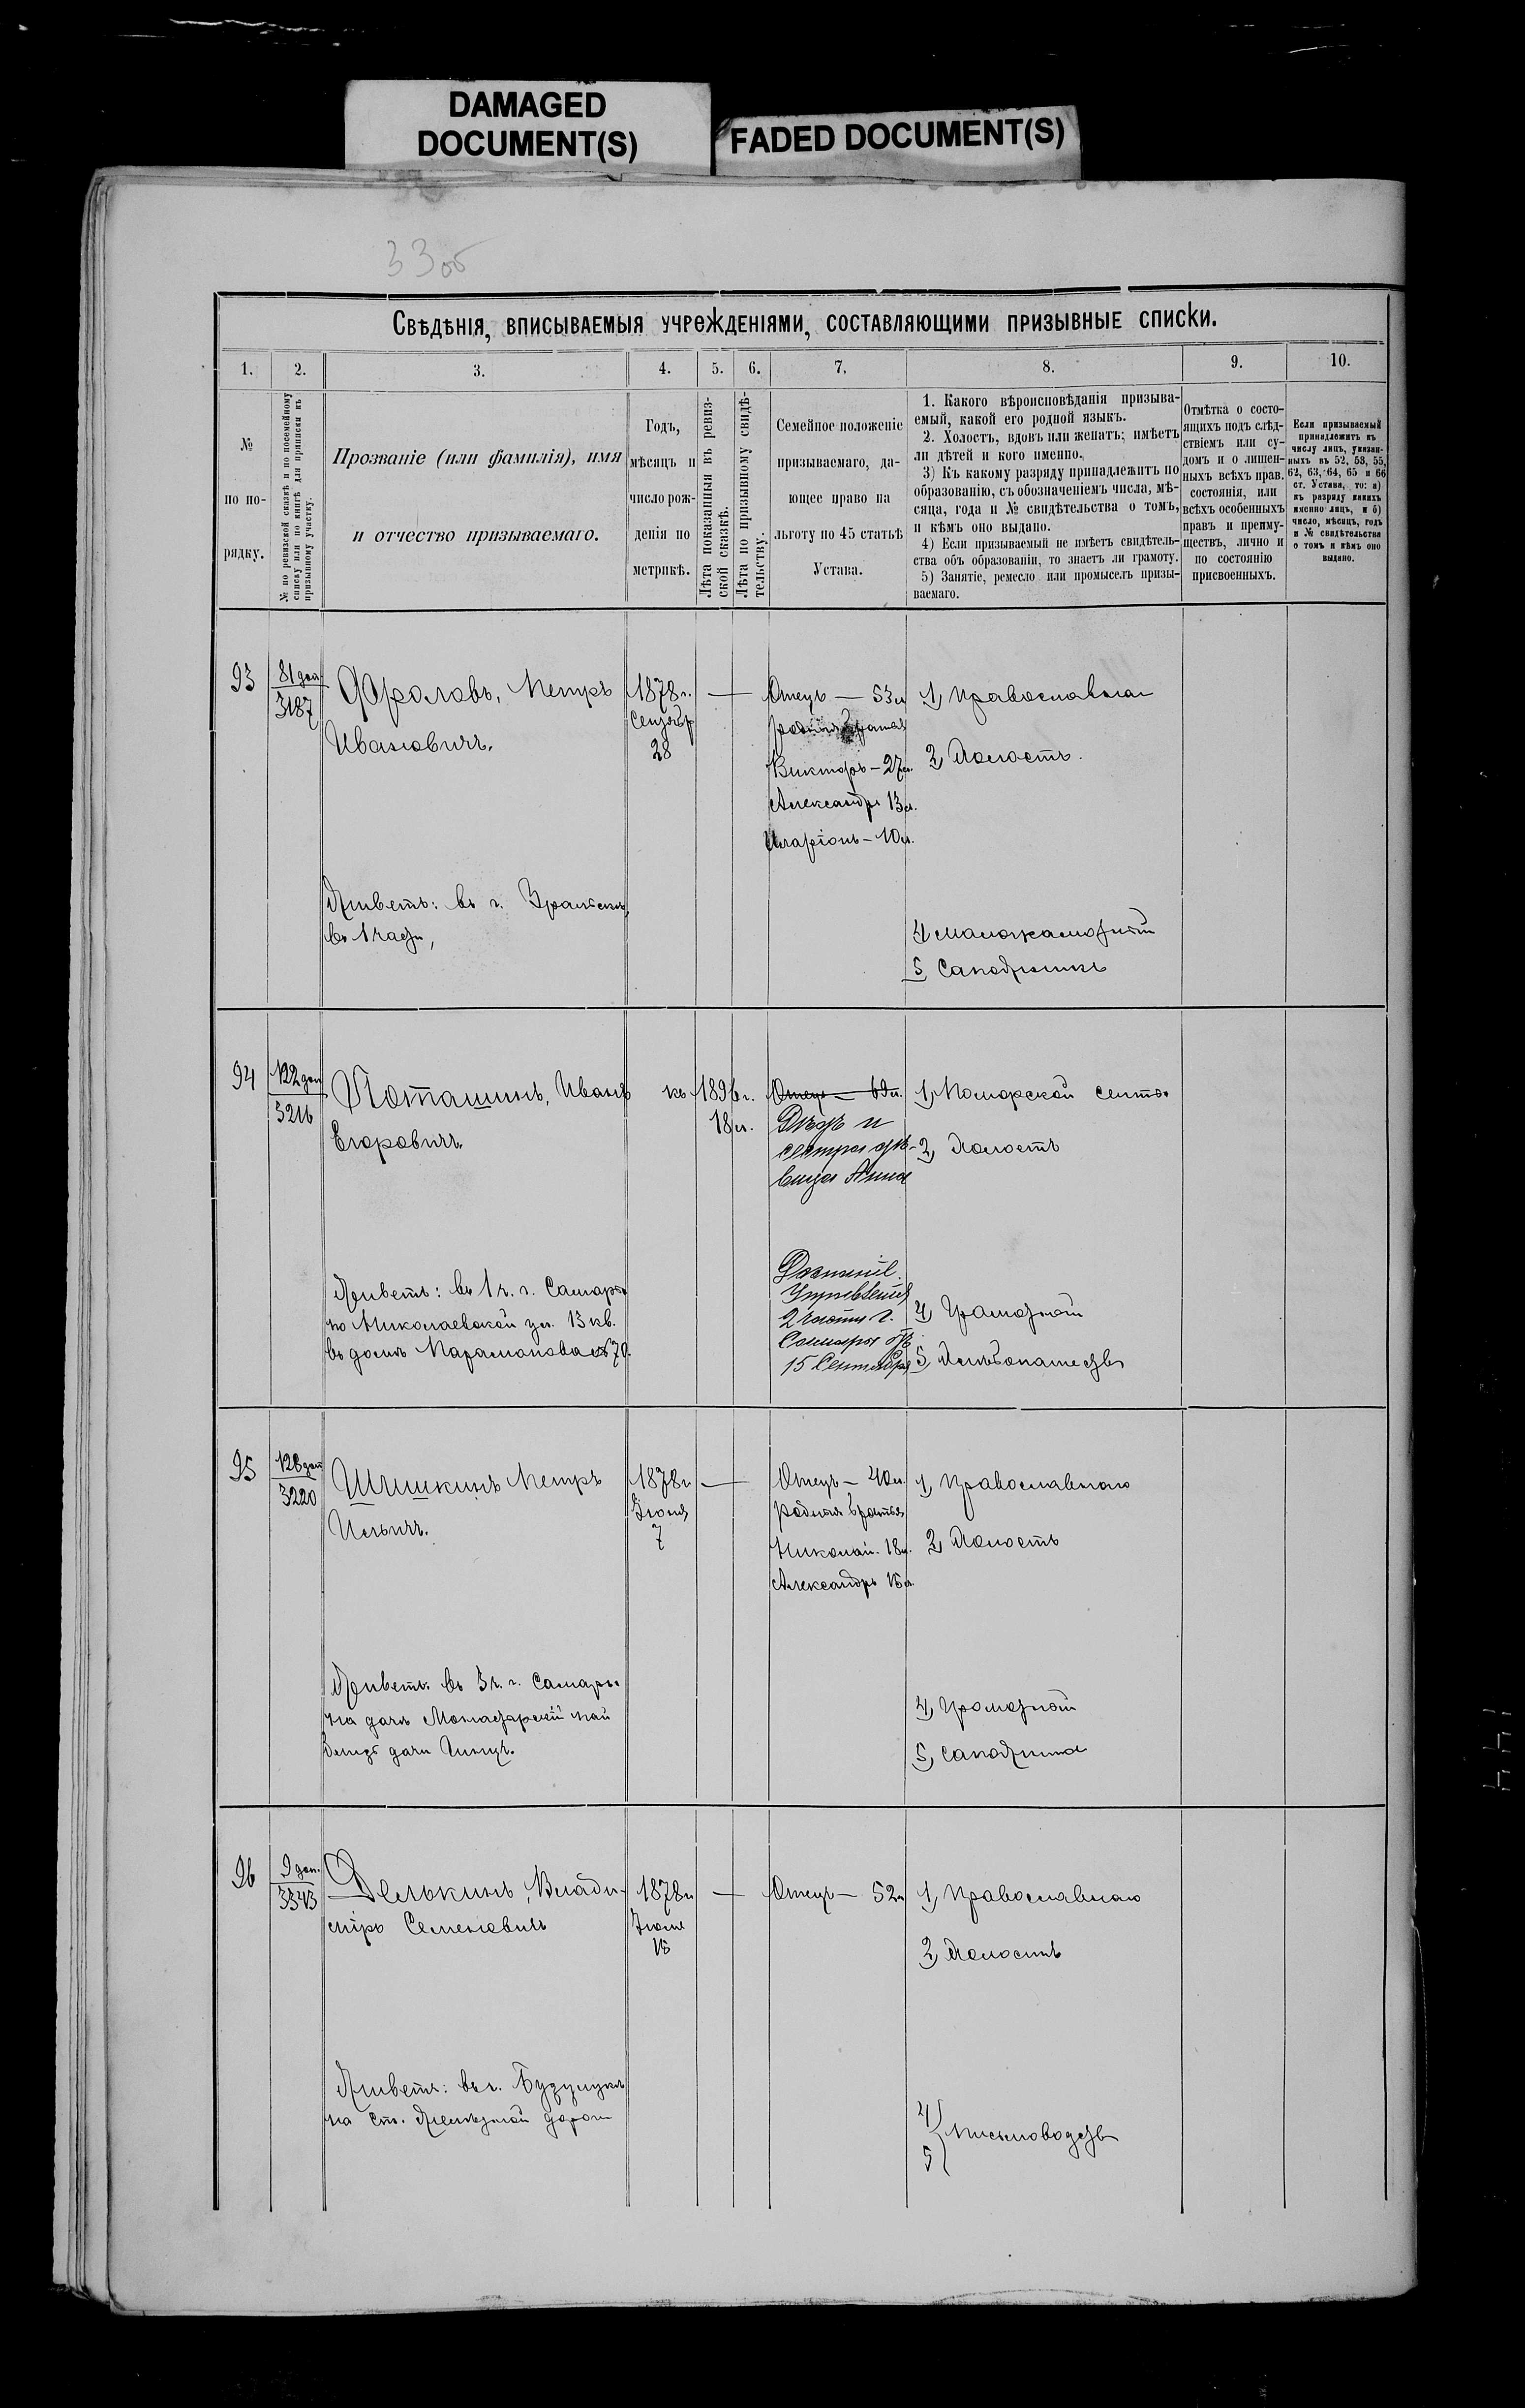 DAMAGED
DOCUMENT(S)
FADED DOCUMENT(S)
33 об
Свѣдѣнія, вписываемыя учрежденіями, составляющими призывные списки.
1. 2. 3. 4. 5. 6. 7. 8. 9. 10.
№
по по-
рядку.
№ по ревизской сказкѣ и по посемейному
списку или по книгѣ для приписки къ
призывному участку.
Прозваніе (или фамилія), имя
и отчество призываемаго.
Годъ,
мѣсяцъ и
число рож-
денія по
метрикѣ.
Лѣта показанныя въ ревиз-
ской сказкѣ.
Лѣта по призывному свидѣ-
тельству.
Семейное положеніе
призываемаго, да-
ющее право на
льготу по 45 статьѣ
Устава.
1. Какого вѣроисповѣданія призыва-
емый, какой его родной языкъ.
2. Холостъ, вдовъ или женатъ; имѣетъ
ли дѣтей и кого именно.
3) Къ какому разряду принадлежитъ по
образованію, съ обозначеніемъ числа, мѣ-
сяца, года и № свидѣтельства о томъ,
и кѣмъ оно выдано.
4) Если призываемый не имѣетъ свидѣтель-
ства объ образованіи, то знаетъ ли грамоту.
5) Занятіе, ремесло или промыселъ призы-
ваемаго.
Отмѣтка о состо-
ящихъ подъ слѣд-
ствіемъ или су-
домъ и о лишен-
ныхъ всѣхъ прав.
состоянія, или
всѣхъ особенныхъ
правъ и преиму-
ществъ, лично и
по состоянію
присвоенныхъ.
Если призываемый
принадлежитъ къ
числу лицъ, указан-
ныхъ въ 52, 53, 55,
62, 63, 64, 65 и 66
ст. Устава, то: а)
къ разряду какихъ
именно лицъ, и б)
число, мѣсяцъ, годъ
и № свидѣтельства
о томъ и кѣмъ оно
выдано.
93
81 доп
3187
Фроловъ, Петръ
Ивановичъ.
1878 г.
Сентябр
28
Отецъ — 53 л
родныя братья
Викторъ — 27 л.
Александръ 13 л.
Иларіонъ — 10 л.
1) Православнаго
2) Холостъ.
Живетъ: въ г.
въ 1 части,
4) малограмотный
5) Сапожникъ
94
122 доп
3216
Поташинъ, Иванъ
Егоровичъ.
къ 1896 г.
18 л.
Отецъ — 69 л.
Дѣдъ и
сестра дѣ-
вица Анна
1) Поморской секты
2) Холостъ
Живетъ: въ 1 ч. г. Самары
по Николаевской ул. 13 кв.
въ домѣ Парамонова № 70.
Дознаніе
Управленія
2 части г.
Самары отъ
15 Сентября
4) Грамотный
5) Хлѣбопашество
95
128 доп
3220
Шишкинъ Петръ
Ильичъ.
1878 г
Іюня
7
Отецъ — 40 л.
родныя братья
Николай. 18 л.
Александръ 15 л.
1) Православнаго
2) Холостъ
Живетъ: въ 3 ч. г. Самары
на дачѣ
4) Грамотный
5) Сапожникъ
96
9 доп.
3343
Делькинъ, Влади-
міръ Семеновичъ
1878 г
Іюля
15
Отецъ — 52 л
1) Православнаго
2) Холостъ
Живетъ: въ г. Бузулукѣ
на ст. Желѣзной дороги
4)
5) Письмоводство